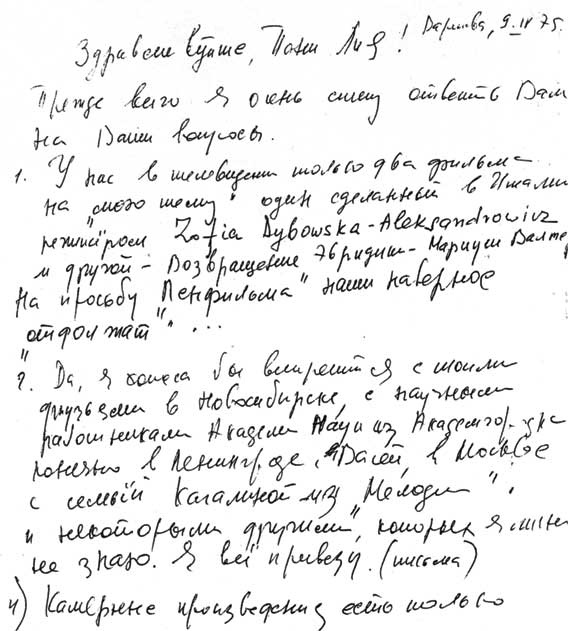 Здравствуйте, Пани Лия! Варшава, 9 IV 75.
Прежде всего я очень спешу ответить Вам
на Ваши вопросы.
1. У нас в телевидении только два фильма
на "мою тему" один сделанный в Италии
режиссёром Zofia Dybowska-Aleksandrowicz
и другой - Возвращение Эвридики - Мариуш Вальтер
На просьбу "Ленфильма" наши наверное
"отдолжат" ...
2. Да, я хотела бы встретится с моими
друзьями в Новосибирске, с научными
работниками Академи Наук из Академгородка
конечно в Ленинграде, в Москве
с семьёй Качалиной из "Мелоди",
и некоторыми друзьями, которых я лично
не знаю. Я всё привезу. (письма)
4) Камерные произведения есть только